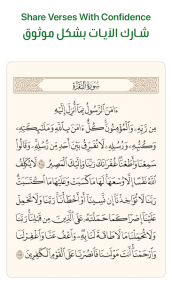 Share Verses With Confidence
شارك الآيات بشكل موثوق
سُورَةُ البَقَرَةِ
ءَامَنَ ٱلرَّسُولُ بِمَآ أُنزِلَ إِلَيْهِ
مِن رَّبِّهِۦ وَٱلْمُؤْمِنُونَ كُلٌّ ءَامَنَ بِٱللَّهِ وَمَلَٰٓئِكَتِهِۦ
وَكُتُبِهِۦ وَرُسُلِهِۦ لَا نُفَرِّقُ بَيْنَ أَحَدٍ مِّن رُّسُلِهِۦ وَقَالُوا۟
سَمِعْنَا وَأَطَعْنَا غُفْرَانَكَ رَبَّنَا وَإِلَيْكَ ٱلْمَصِيرُ لَا يُكَلِّفُ
ٱللَّهُ نَفْسًا إِلَّا وُسْعَهَا لَهَا مَا كَسَبَتْ وَعَلَيْهَا مَا ٱكْتَسَبَتْ
رَبَّنَا لَا تُؤَاخِذْنَآ إِن نَّسِينَآ أَوْ أَخْطَأْنَا رَبَّنَا وَلَا تَحْمِلْ
عَلَيْنَآ إِصْرًا كَمَا حَمَلْتَهُۥ عَلَى ٱلَّذِينَ مِن قَبْلِنَا رَبَّنَا
وَلَا تُحَمِّلْنَا مَا لَا طَاقَةَ لَنَا بِهِۦ وَٱعْفُ عَنَّا وَٱغْفِرْ لَنَا
وَٱرْحَمْنَآ أَنتَ مَوْلَىٰنَا فَٱنصُرْنَا عَلَى ٱلْقَوْمِ ٱلْكَٰفِرِينَ